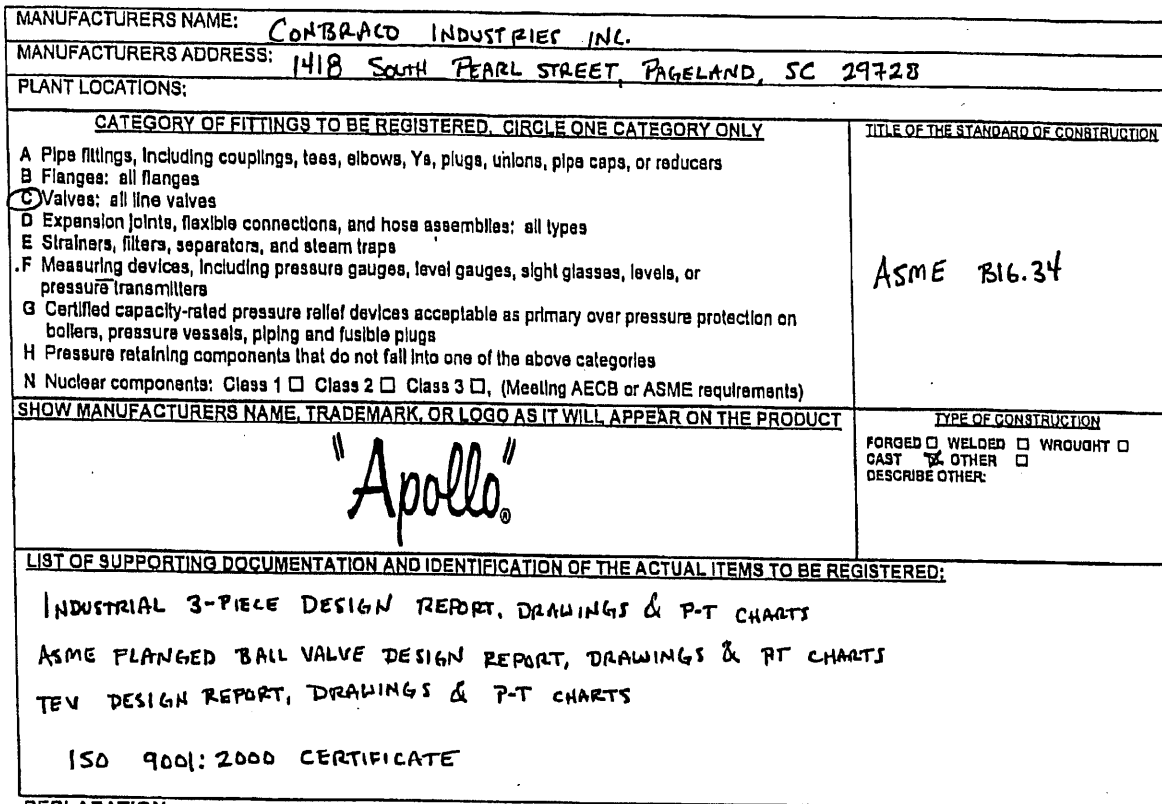 MANUFACTURERS NAME: CONBRACO INDUSTRIES INC.
MANUFACTURERS ADDRESS: 1418 SOUTH PEARL STREET, PAGELAND, SC 29728
PLANT LOCATIONS:
CATEGORY OF FITTINGS TO BE REGISTERED. CIRCLE ONE CATEGORY ONLY
A Pipe fittings, including couplings, tees, elbows, Ys, plugs, unions, pipe caps, or reducers
B Flanges: all flanges
C Valves: all line valves
D Expansion joints, flexible connections, and hose assemblies: all types
E Strainers, filters, separators, and steam traps
F Measuring devices, including pressure gauges, level gauges, sight glasses, levels, or
pressure transmitters
G Certified capacity-rated pressure relief devices acceptable as primary over pressure protection on
boilers, pressure vessels, piping and fusible plugs
H Pressure retaining components that do not fall into one of the above categories
N Nuclear components: Class 1 ☐ Class 2 ☐ Class 3 ☐, (Meeting AECB or ASME requirements)
TITLE OF THE STANDARD OF CONSTRUCTION
ASME B16.34
SHOW MANUFACTURERS NAME, TRADEMARK, OR LOGO AS IT WILL APPEAR ON THE PRODUCT
"Apollo"®
TYPE OF CONSTRUCTION
FORGED ☐ WELDED ☐ WROUGHT ☐
CAST ☒ OTHER ☐
DESCRIBE OTHER:
LIST OF SUPPORTING DOCUMENTATION AND IDENTIFICATION OF THE ACTUAL ITEMS TO BE REGISTERED:
INDUSTRIAL 3-PIECE DESIGN REPORT, DRAWINGS & P-T CHARTS
ASME FLANGED BALL VALVE DESIGN REPORT, DRAWINGS & PT CHARTS
TEV DESIGN REPORT, DRAWINGS & P-T CHARTS
ISO 9001:2000 CERTIFICATE